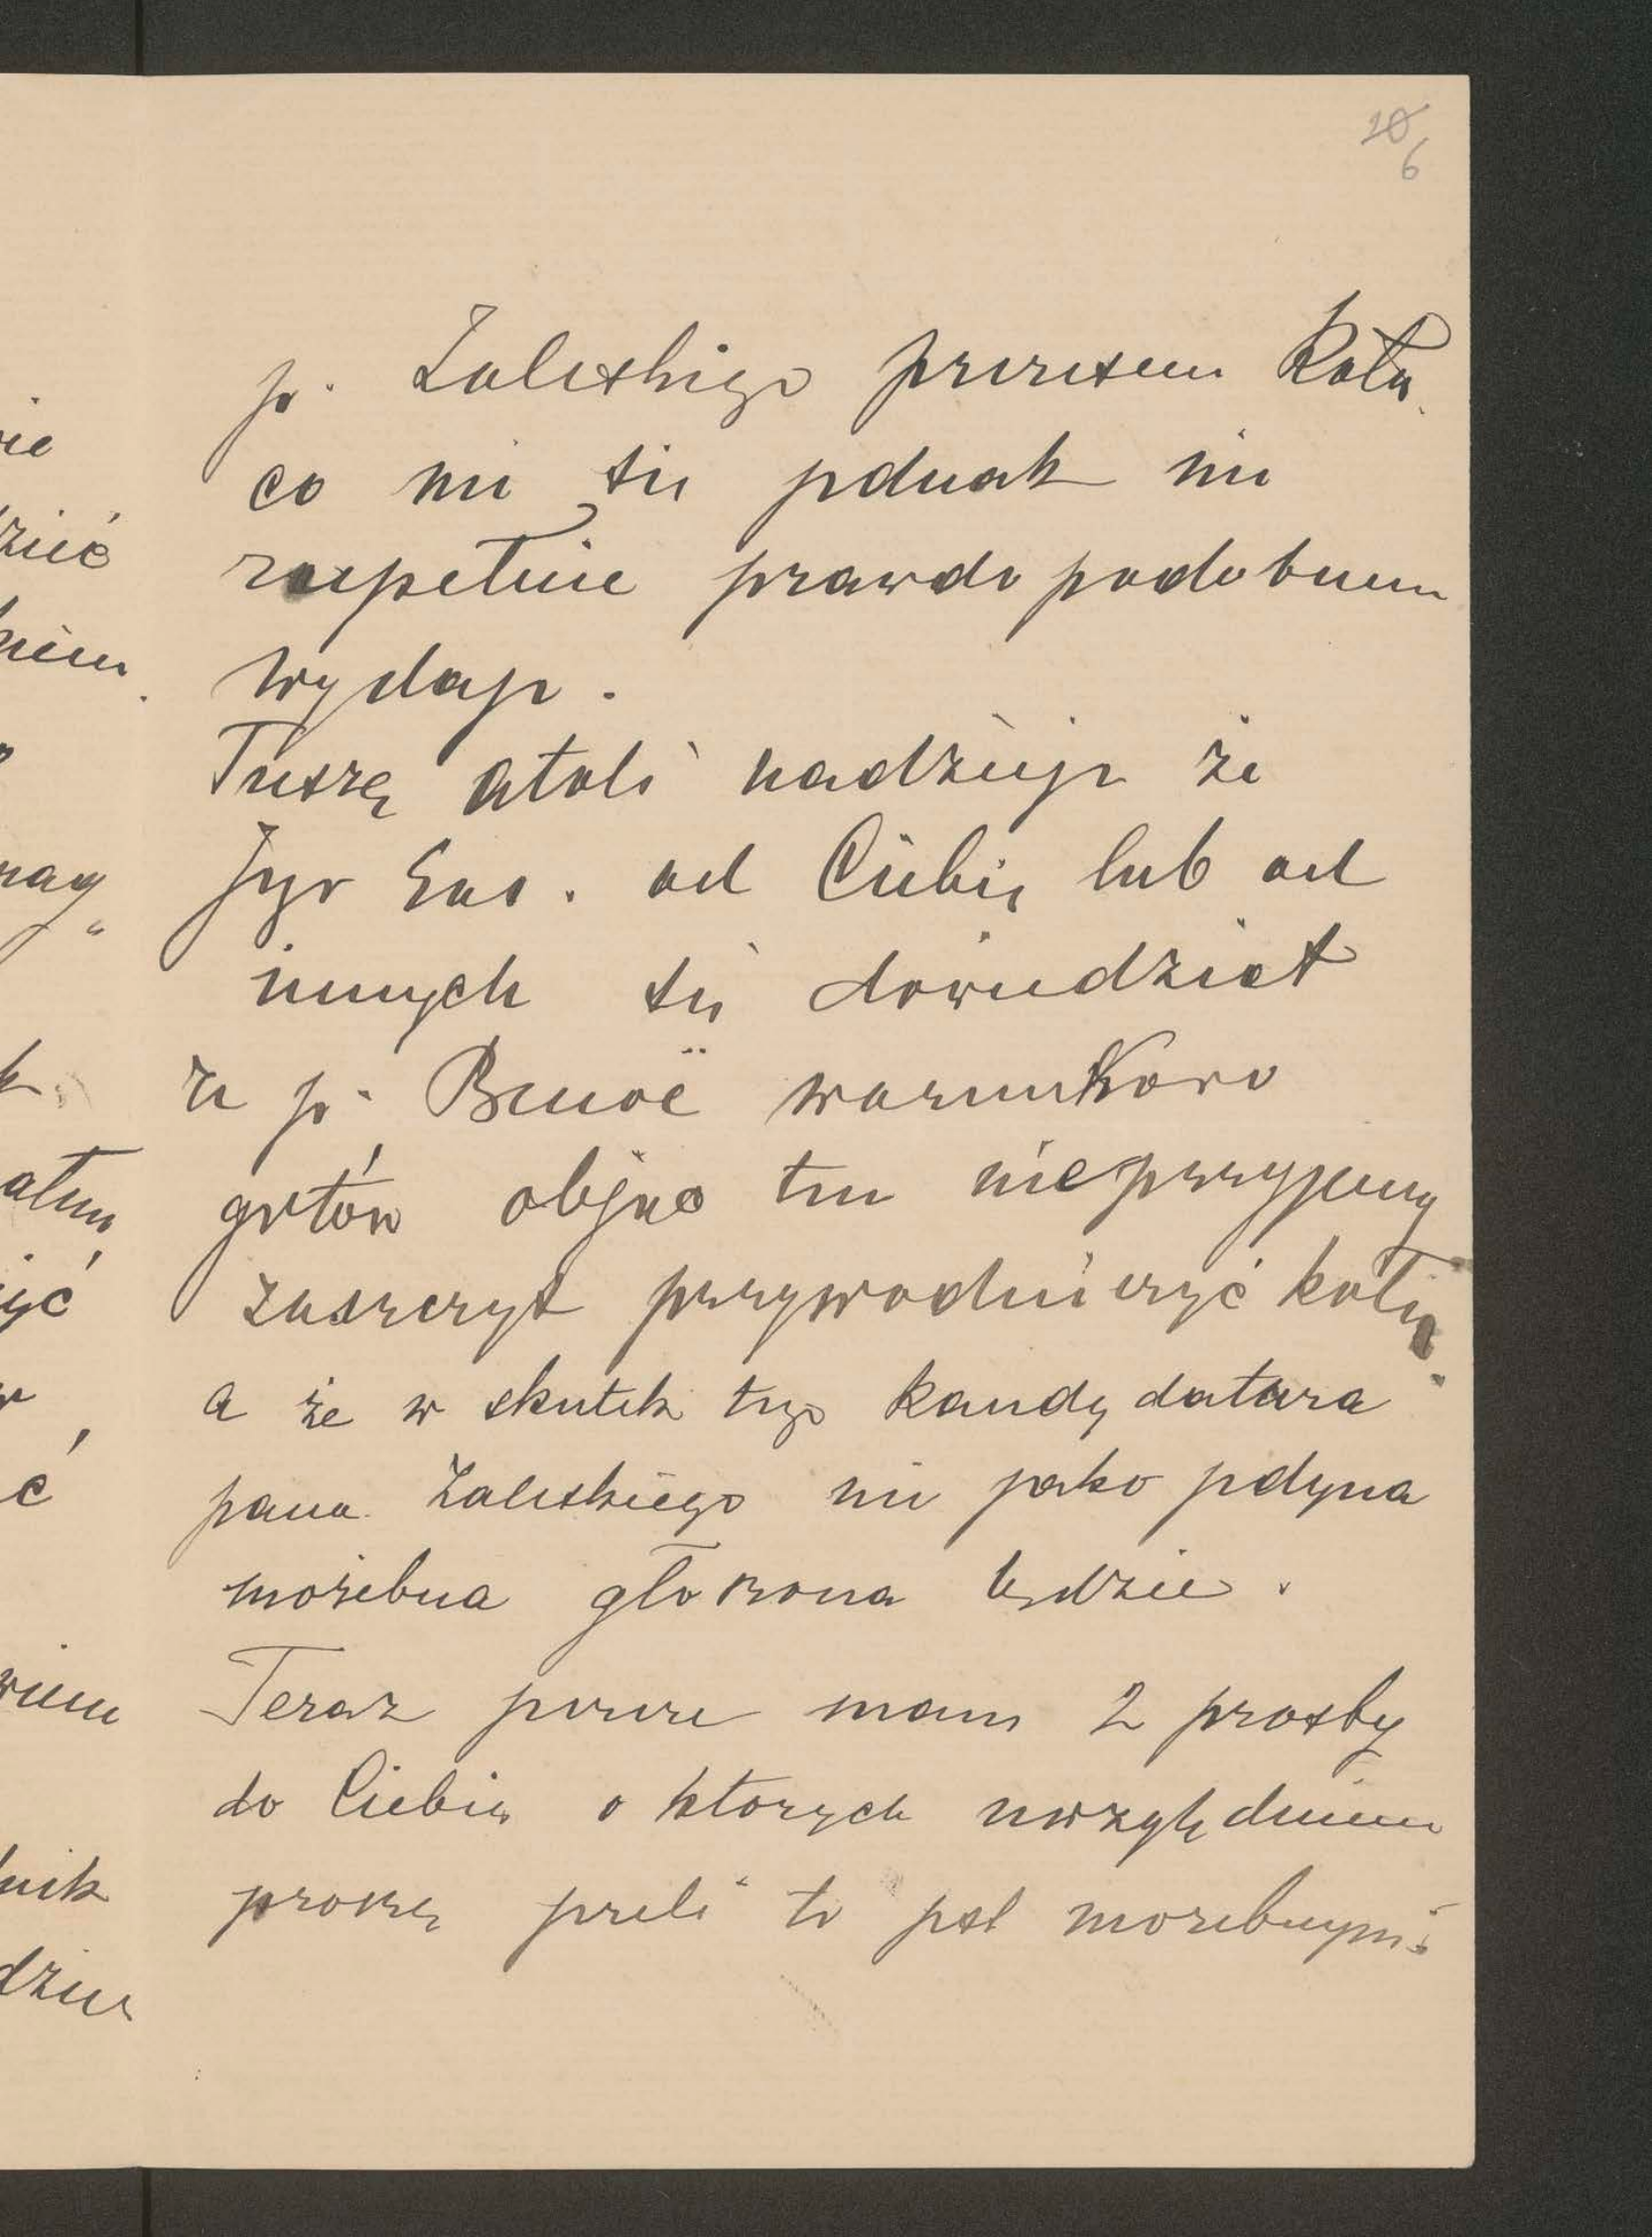 10
6
p. Zaleskiego prezesem Koła
co mi się jednak nie
zupełnie prawdopodobnem
wydaje.
Tuszę atoli nadzieje że
Jego Exc. od Ciebie lub od
innych się dowiedział
że p. Benoë warunkowo
gotów objąć ten nieprzyjemny
zaszczyt przywodniczyć kołu
a że w skutek tego kandydatura
pana Zaleskiego nie jako jedyna
możebna głoszona będzie.
Teraz jeszcze mam 2 prosby
do Ciebie o ktorych uwzględnienie
proszę jeżeli to jest możebnym: